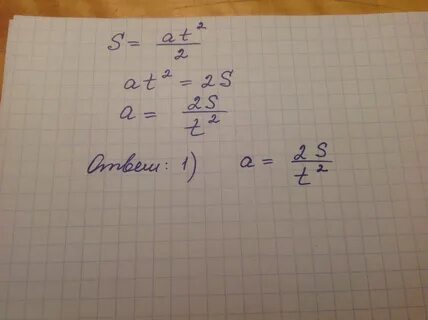 S = at²/2
at² = 2S
a = 2S/t²
Ответ: 1) a = 2S/t²